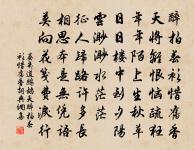 醉拍春衫惜舊香
天將離恨惱疏狂
年年陌上生秋草
日日樓中到夕陽
雲渺渺水茫茫
征人歸路許多長
相思本是無憑語
莫向花箋費淚行
晏幾道鷓鴣天醉拍春
衫惜舊香